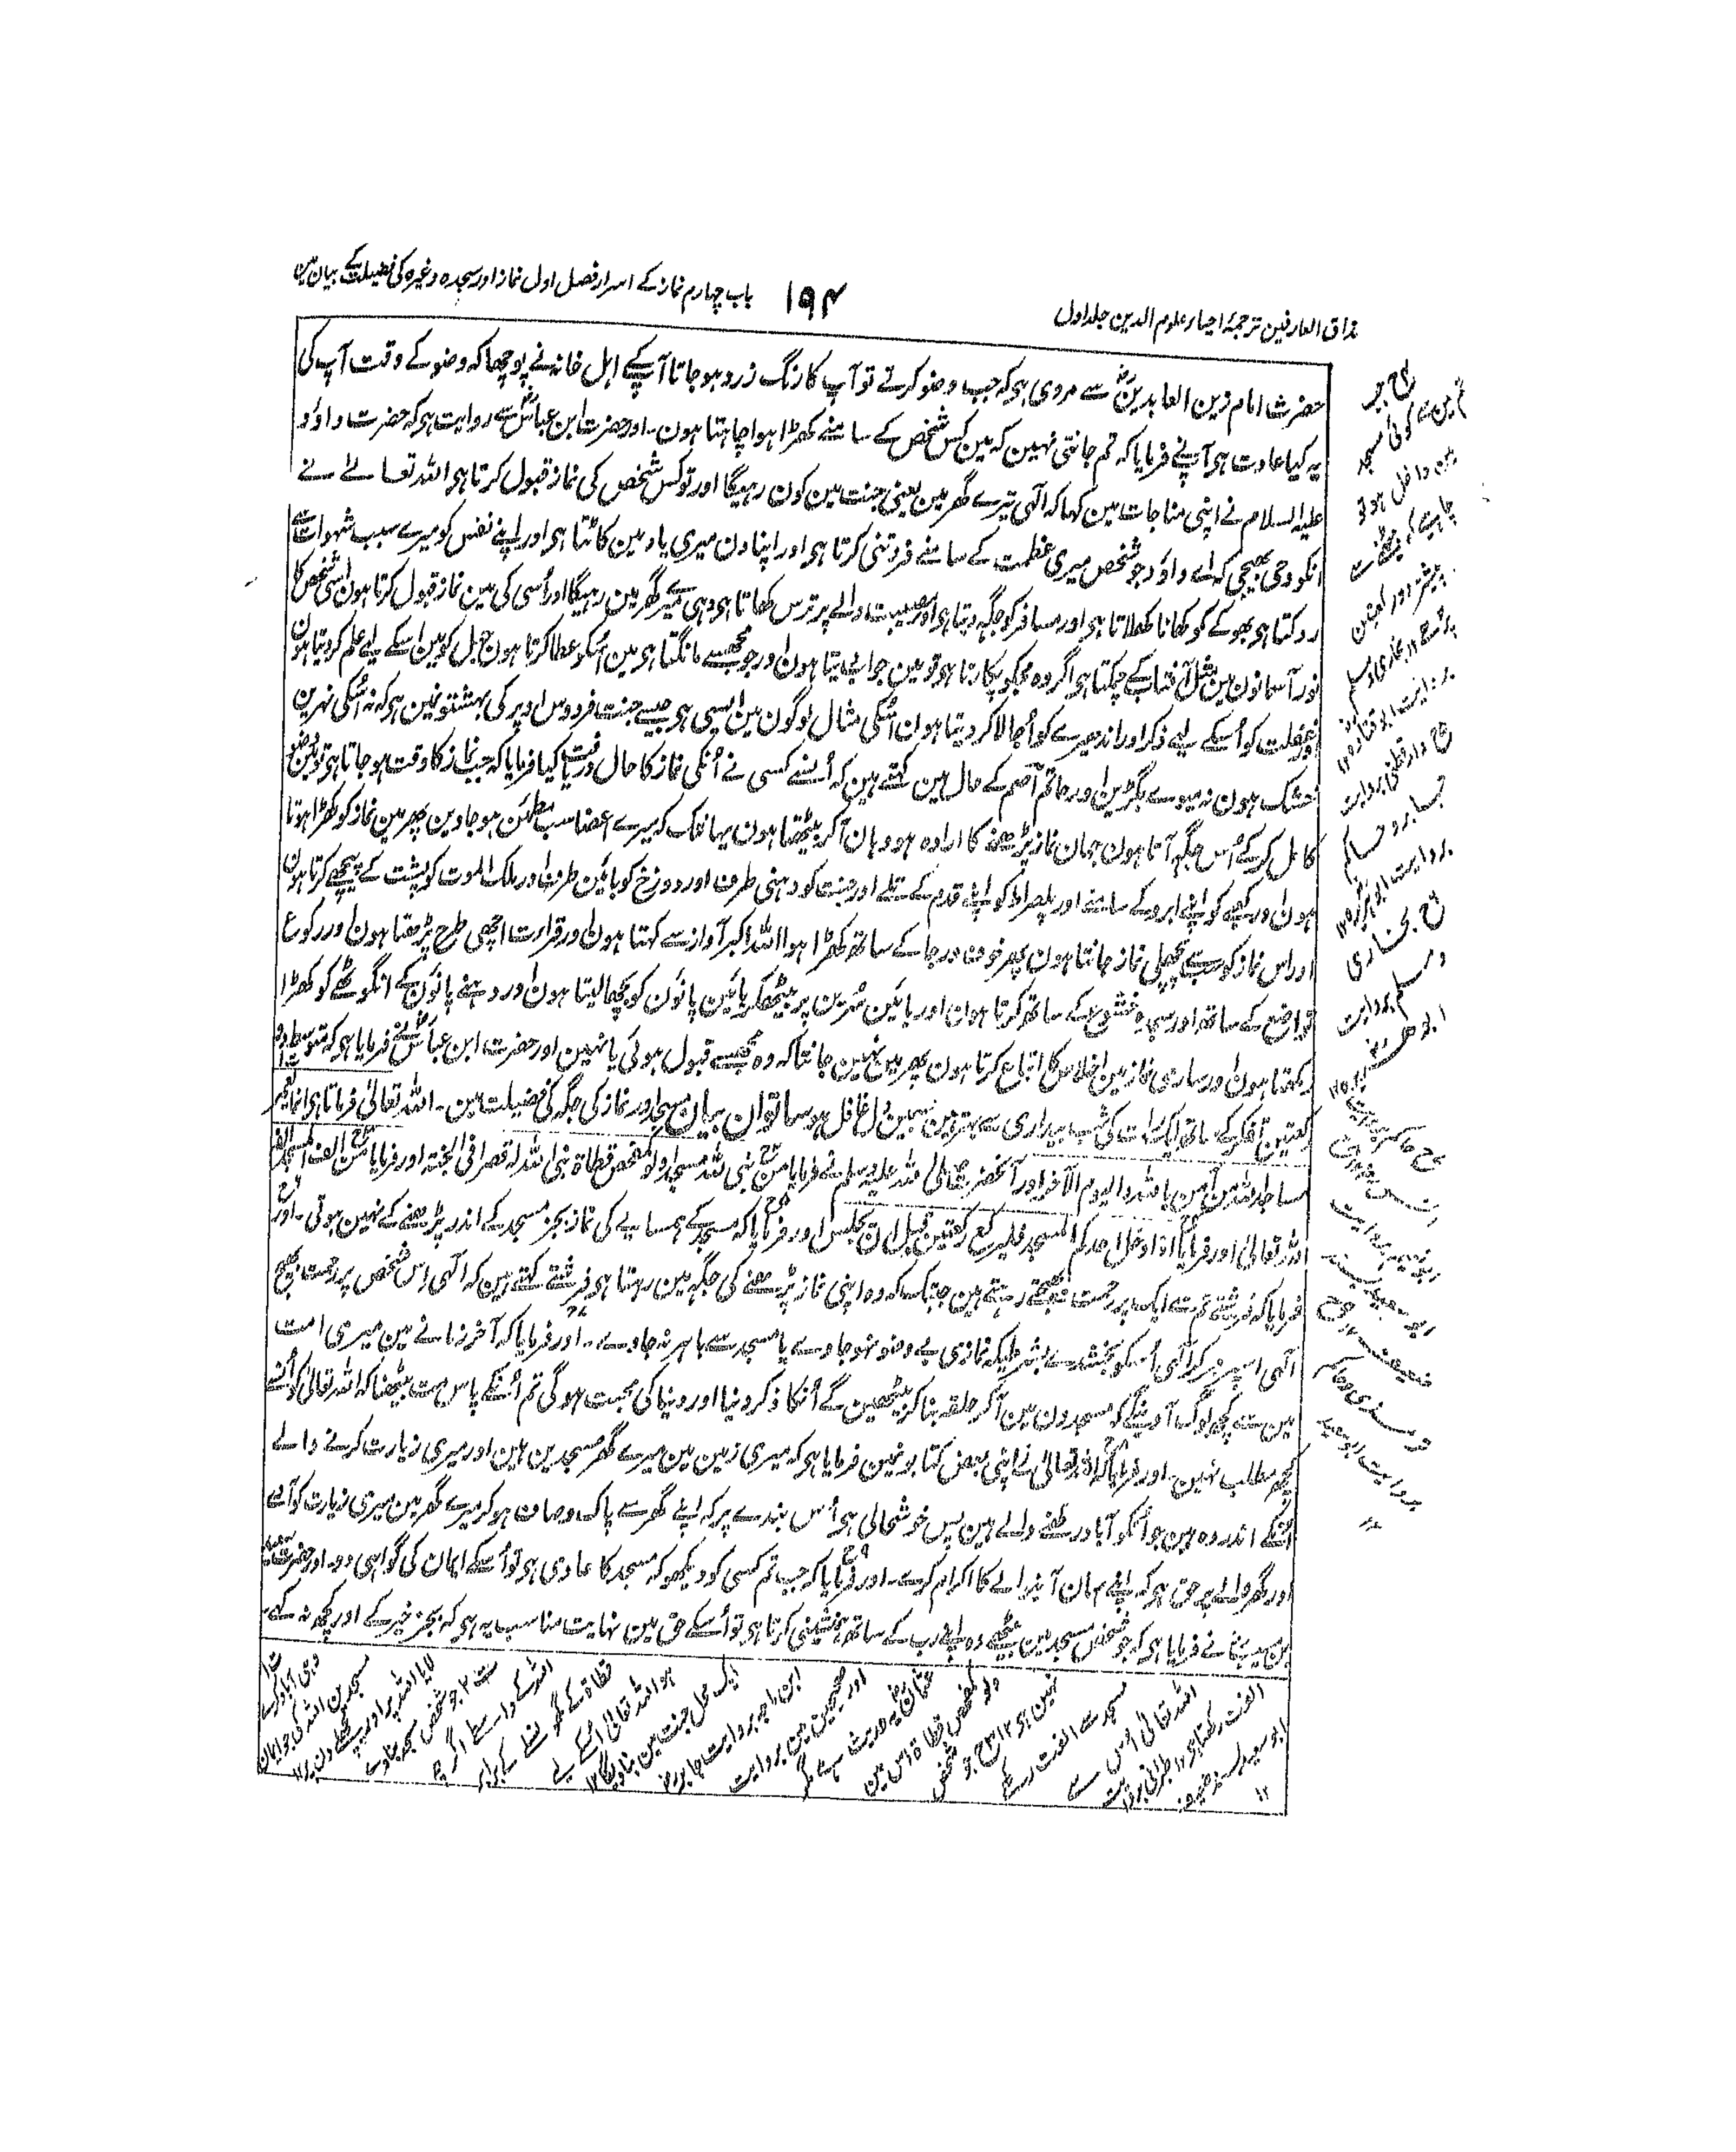 مذاق العارفین ترجمۂ احیاء علوم الدین جلد اول
۱۹۴
باب چہارم نماز کے اسرار فصل اول نماز اور سجدہ وغیرہ کی فضیلت کے بیان مین
حضرت امام زین العابدینؓ سے مروی ہو کہ جب وضو کرتے تو آپ کا رنگ زرد ہو جاتا آپکے اہل خانہ نے پوچھا کہ وضو کے وقت آپ کی
یہ کیا عادت ہو آپنے فرمایا کہ تم جانتی نہین کہ مین کس شخص کے سامنے کھڑا ہوا چاہتا ہون۔ اور حضرت ابن عباسؓ سے روایت ہو کہ حضرت داؤد
علیہ السلام نے اپنی مناجات مین کہا کہ الٰہی تیرے گھر مین یعنی جنت مین کون رہیگا اور تو کس شخص کی نماز قبول کرتا ہو اللہ تعالےٰ نے
انکو وحی بھیجی کہ اے داؤد جو شخص میری عظمت کے سامنے فروتنی کرتا ہو اور اپنا دن میری یاد مین کاٹتا ہو اور اپنے نفس کو میرے سبب شہوات سے
روکتا ہو بھوکے کو کھانا کھلاتا ہو اور مسافر کو جگہ دیتا ہو اور مصیبت والے پر ترس کھاتا ہو وہی میرے گھر مین رہیگا اور اُسی کی مین نماز قبول کرتا ہون اسی شخص کا
نور آسمانون مین مثل آفتاب کے چمکتا ہو اگر وہ مجکو پکارتا ہو تو مین جواب دیتا ہون اور جو مجھسے مانگتا ہو مین اُسکو عطا کرتا ہون جہل کو مین اسکے لیے علم کر دیتا ہون
اور غفلت کو اُسکے لیے ذکر اور اندھیرے کو اُجالا کر دیتا ہون اُسکی مثال لوگون مین ایسی ہو جیسے جنت فردوس اوپر کی بہشتونمین ہو کہ نہ اُسکی نہرین
خشک ہون نہ میوے بگڑین اور حاتم اصم کے حال مین کہتے ہین کہ اُنسے کسی نے اُنکی نماز کا حال دریافت کیا فرمایا کہ جب نماز کا وقت ہو جاتا ہو تو مین وضو
کامل کر کے اُس جگہ آتا ہون جہان نماز پڑھنے کا ارادہ ہو وہان آکر بیٹھتا ہون یہانتک کہ میرے اعضا سب مطمئن ہو جاوین پھر مین نماز کو کھڑا ہوتا
ہون اور کعبے کو اپنے ابرو کے سامنے اور پلصراط کو اپنے قدم کے تلے اور جنت کو دہنی طرف اور دوزخ کو بائین طرف اور ملک الموت کو پشت کے پیچھے کرتا ہون
اور اس نماز کو سب سے پچھلی نماز جانتا ہون پھر خوف و رجا کے ساتھ کھڑا ہوا اللہ اکبر آواز سے کہتا ہون اور قراءت اچھی طرح پڑھتا ہون اور رکوع
تواضع کے ساتھ اور سجدہ خشوع کے ساتھ کرتا ہون اور بائین سُرین پر بیٹھکر بائین پانوُن کو بچھا لیتا ہون اور دہنے پانوُن کے انگوٹھے کو کھڑا
رکھتا ہون اور ساری نماز مین اخلاص کا اتباع کرتا ہون پھر مین نہین جانتا کہ وہ مجھسے قبول ہوئی یا نہین اور حضرت ابن عباسؓ نے فرمایا ہو کہ متوسط دو
رکعتین تفکر کے ساتھ ایک رات کی شب بیداری سے بہتر ہین جسمین دل غافل ہو ساتوان بیان مسجد اور نماز کی جگہ کی فضیلت مین۔ اللہ تعالیٰ فرماتا ہو انما یعمر
مساجد اللہ من آمن باللہ والیوم الآخر اور آنحضرت صلی اللہ علیہ وسلم نے فرمایا من بنی للہ مسجدا ولو کمفحص قطاۃ بنی اللہ لہ قصرا فی الجنۃ اور فرمایا من الف المسجد الفہ
اللہ تعالیٰ اور فرمایا اذا دخل احدکم المسجد فلیرکع رکعتین قبل ان یجلس اور فرمایا کہ مسجد کے ہمسایے کی نماز بجز مسجد کے اندر پڑھنے کے نہین ہوتی۔ اور
فرمایا کہ فرشتے تم سے ایک پر رحمت بھیجتے رہتے ہین جبتک کہ وہ اپنی نماز پڑھنے کی جگہ مین رہتا ہو فرشتے کہتے ہین کہ الٰہی اِس شخص پر رحمت بھیج
الٰہی اسپر رحم کر الٰہی اُسکو بخشدے بشرطیکہ نمازی بے وضو نہو جاوے یا مسجد سے باہر نہ جاوے۔ اور فرمایا کہ آخر زمانے مین میری امت
مین سے کچھ لوگ آوینگے کہ مسجدون مین آکر حلقہ بنا کر بیٹھین گے اُنکا ذکر دنیا اور دنیا کی محبت ہوگی تم اُنکے پاس مت بیٹھنا کہ اللہ تعالیٰ کو اُنسے
کچھ مطلب نہین۔ اور فرمایا کہ اللہ تعالیٰ نے اپنی بعض کتابونمین فرمایا ہو کہ میری زمین مین میرے گھر مسجدین ہین اور میری زیارت کرنے والے
اُنکے اندر وہ ہین جو اُنکو آباد رکھنے والے ہین پس خوشحالی ہو اُس بندے پر کہ اپنے گھر سے پاک وصاف ہوکر میرے گھر مین میری زیارت کو آئے
اور گھر والے پر حق ہو کہ اپنے مہان آنیوالے کا اکرام کرے۔ اور فرمایا کہ جب تم کسی کو دیکھو کہ مسجد کا عادی ہو تو اُسکے ایمان کی گواہی دو۔ اور حضرت سعید
بن مسیب نے فرمایا ہو کہ جو شخص مسجد مین بیٹھے وہ اپنے رب کے ساتھ ہمنشینی کرتا ہو تو اُسکے حق مین نہایت مناسب یہ ہو کہ بجز خیر کے اور کچھ نہ کہے۔
تم مین سے کوئی مسجد
مین داخل ہو تو
چاہیے کہ بیٹھنے سے
پیشتر دو رکعتین
بروایت ابو قتادہ
دارقطنی بروایت
جابر و حاکم
بروایت ابوہریرہ
بخاری
ومسلم بروایت
ابوہریرہ
بروایت ابو سعید
وہی آباد کرے
مسجدین اللہ کی جو ایمان
لایا اللہ پر اور پچھلے دن پر ۱۲
جو شخص مسجد بناوے
اللہ کے واسطے اگرچہ
قطاۃ کے گھونسلے کے برابر
ہو اللہ تعالیٰ اُسکے لیے
ایک محل جنت مین بناویگا ۱۲
ابن ماجہ بروایت جابرؓ
اور صحیحین مین بروایت
عثمانؓ یہ حدیث ہے مگر
ولو کمفحص قطاۃ اس مین
نہین ہو ۱۲ جو شخص
مسجد سے الفت رکھے
اللہ تعالیٰ اُس سے
الفت رکھتا ہو ۱۲ طبرانی بروایت
ابو سعید بسند ضعیف
۱۲